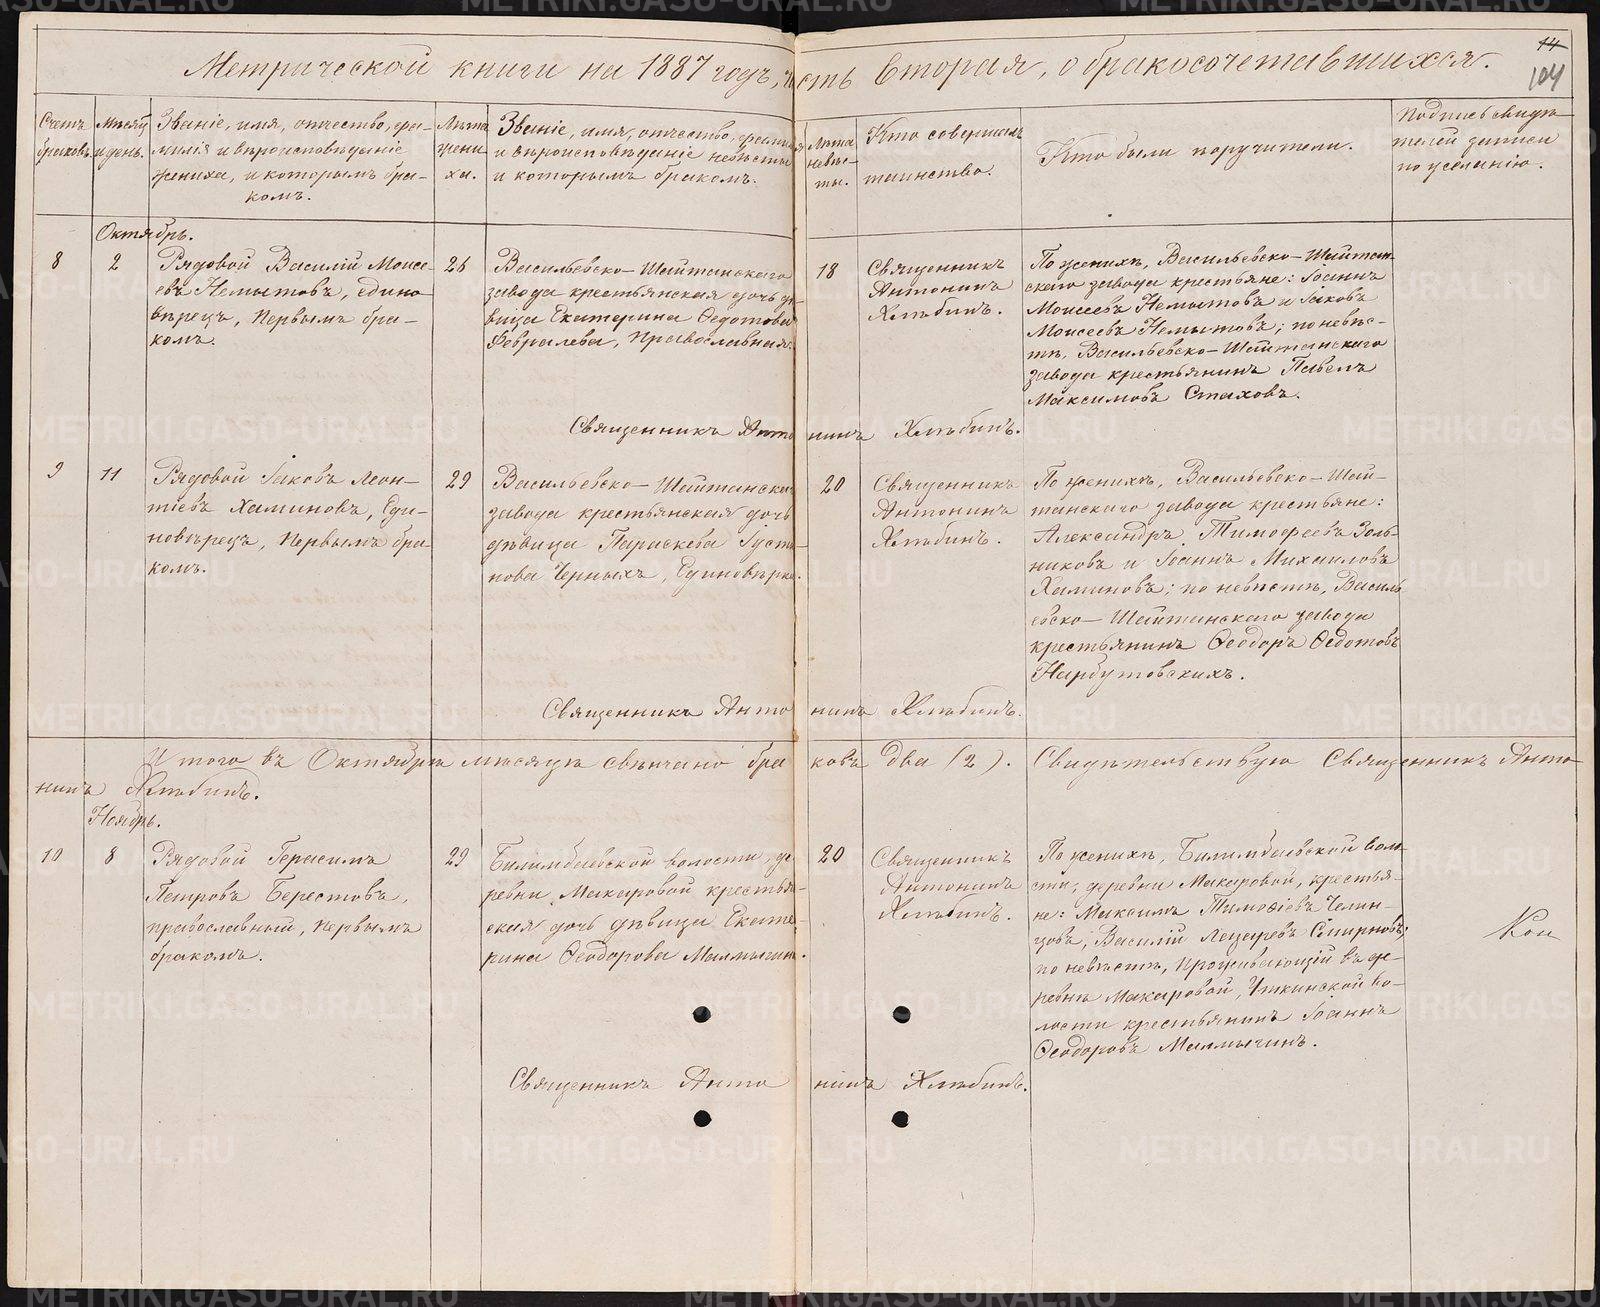 Метрической книги на 1887 годъ, часть вторая, о бракосочетавшихся.
14
104
Счетъ браковъ.
Мѣсяцъ и день.
Званіе, имя, отчество, фа-
милія и вѣроисповѣданіе
жениха, и которымъ бра-
комъ.
Лѣта
жени-
ха.
Званіе, имя, отчество, фамилія
и вѣроисповѣданіе невѣсты
и которымъ бракомъ.
Лѣта
невѣс-
ты.
Кто совершалъ
таинство.
Кто были поручители.
Подпись свидѣ-
телей записи
по желанію.
Октябрь.
8
2
Рядовой Василій Моисе-
евъ Немытовъ, едино-
вѣрецъ, первымъ бра-
комъ.
26
Васильевско-Шайтанскаго
завода крестьянская дочь дѣ-
вица Екатерина Ѳедотова
Февралева, православная.
18
Священникъ
Антонинъ
Хлѣбинъ.
По женихѣ, Васильевско-Шайтан-
скаго завода крестьяне: Іоаннъ
Моисеевъ Немытовъ и Іаковъ
Моисеевъ Немытовъ; по невѣс-
тѣ, Васильевско-Шайтанскаго
завода крестьянинъ Павелъ
Максимовъ Стаховъ.
Священникъ Антонинъ Хлѣбинъ.
9
11
Рядовой Іаковъ Леон-
тіевъ Хаминовъ, Еди-
новѣрецъ, первымъ бра-
комъ.
29
Васильевско-Шайтанскаго
завода крестьянская дочь
дѣвица Параскева Іусти-
нова Черныхъ, Единовѣрка.
20
Священникъ
Антонинъ
Хлѣбинъ.
По женихѣ, Васильевско-Шай-
танскаго завода крестьяне:
Александръ Тимофеевъ Золь-
никовъ и Іоаннъ Михаиловъ
Хаминовъ; по невѣстѣ, Василь-
евско-Шайтанскаго завода
крестьянинъ Ѳеодоръ Ѳедотовъ
Нарбутовскихъ.
Священникъ Антонинъ Хлѣбинъ.
Итого въ Октябрѣ мѣсяцѣ свѣнчано браковъ два (2). Свидѣтельствую Священникъ Анто-
нинъ Хлѣбинъ.
Ноябрь.
10
8
Рядовой Герасимъ
Петровъ Берестовъ,
православный, первымъ
бракомъ.
29
Билимбаевской волости, де-
ревни Макаровой крестьян-
ская дочь дѣвица Екате-
рина Ѳеодорова Малмыгина.
20
Священникъ
Антонинъ
Хлѣбинъ.
По женихѣ, Билимбаевской воло-
сти, деревни Макаровой, крестья-
не: Максимъ Тимоѳіевъ Челин-
цовъ, Василій Лазаревъ Смирновъ;
по невѣстѣ, проживающій въ де-
ревнѣ Макаровой, Уткинской во-
лости крестьянинъ Іоаннъ
Ѳеодоровъ Малмыгинъ.
Кол
Священникъ Антонинъ Хлѣбинъ.